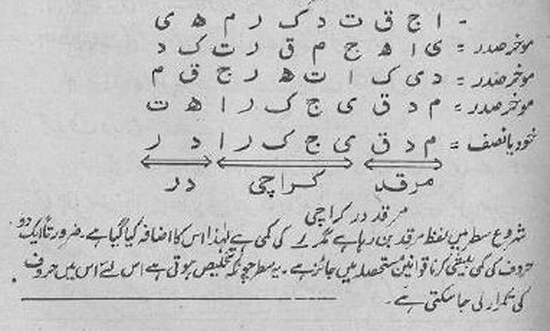 - ا ج ق ت د ک ر م ھ ی
موخر صدر = ی ا ھ ج م ق ر ت ک د
موخر صدر = د ی ک ا ت ھ ر ج ق م
موخر صدر = م د ق ی ج ک ر ا ھ ت
خود یا نصف = م د ق ی ج ک ر ا د ر
مرقد کراچی در
مرقد در کراچی
شروع سطر میں لفظ مرقد بن رہا ہے مگر ر کی کمی ہے لہٰذا اس کا اضافہ کیا گیا ہے۔ ضرورتاً ایک دو
حروف کی کمی بیشی کرنا قوانین مستحصلہ میں جائز ہے۔ یہ سطر چونکہ تلخیص ہوتی ہے اس لئے اس میں حروف
کی تکرار لی جا سکتی ہے۔